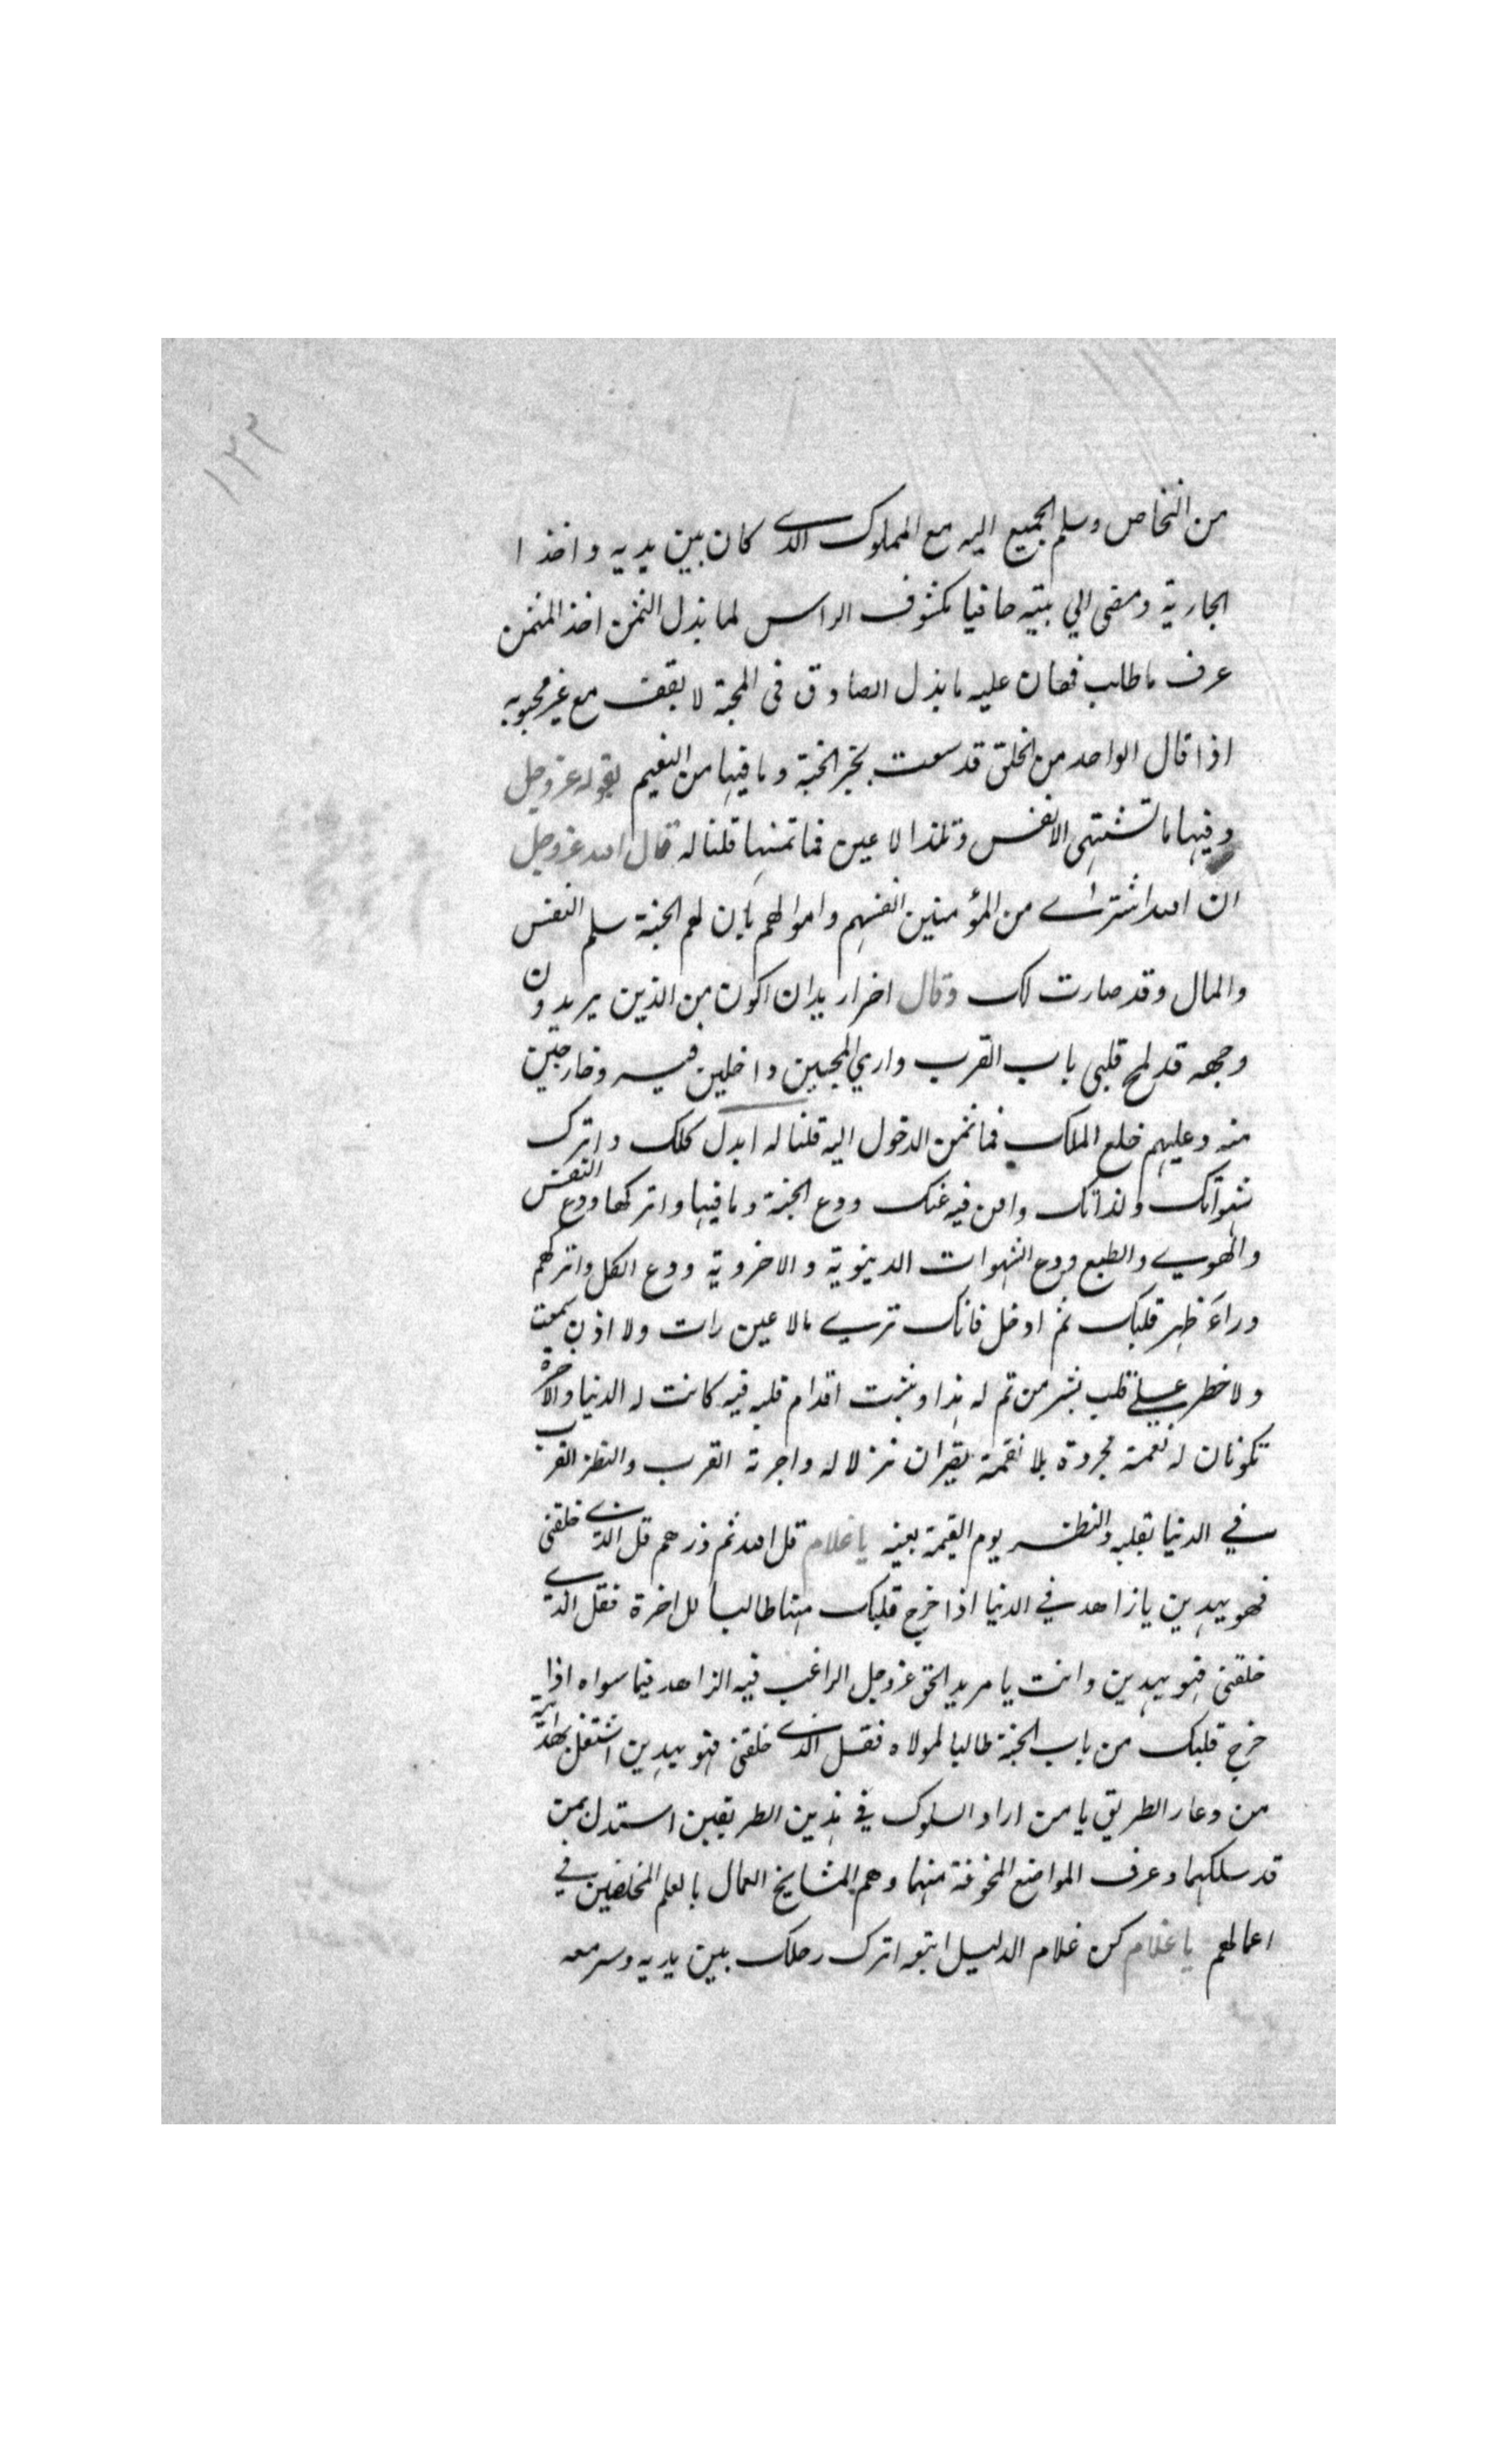 ١٢٢
من النخاص وسلم الجميع اليه مع المملوك الذي كان بين يديه واخذ ا
الجارية ومضى الي بيته حافيا مكشوف الراس لما بذل الثمن اخذ المثمن
عرف ما طلب فهان عليه ما بذل الصادق فى المحبة لا يقف مع غير محبوبه
اذا قال الواحد من الخلق قد سمعت بخبر الجنة وما فيها من النعيم بقوله عز وجل
وفيها ما تشتهى الانفس وتلذ الاعين فما ثمنها قلنا له قال الله عز وجل
ان الله اشتراي من المؤمنين انفسهم واموالهم بان لهم الجنة سلم النفس
والمال وقد صارت لك وقال اخر اريد ان اكون من الذين يريدون
وجهه قد لمح قلبى باب القرب واري المحبين داخلين فيه وخارجين
منه وعليهم خلع الملك فما ثمن الدخول اليه قلنا له ابدل كلك واترك
شهواتك ولذاتك وافن فيه عنك ودع الجنة وما فيها واتركها ودع النفس
والهوي والطبع ودع الشهوات الدنيوية والاخروية ودع الكل واتركهم
وراء ظهر قلبك ثم ادخل فانك تري مالا عين رات ولا اذن سمعت
ولا خطر علي قلب بشر من تم له هذا وثبت اقدام قلبه فيه كانت له الدنيا والاخرة
تكونان له نعمة مجردة بلا نقمة يصيران نزلا له واجرته القرب والنظر القرب
في الدنيا بقلبه والنظر يوم القيمة بعينه يا غلام قل الله ثم ذرهم قل الذي خلقنى
فهو يهدين يا زاهد في الدنيا اذا خرج قلبك منها طالبا للاخرة فقل الذي
خلقنى فهو يهدين وانت يا مريد الحق عز وجل الراغب فيه الزاهد فيما سواه اذا
خرج قلبك من باب الجنة طالبا لمولاه فقل الذي خلقنى فهو يهدين اشتغل بهدايته
من وعار الطريق يا من اراد السلوك في هذين الطريقين استدل بمن
قد سلكهما وعرف المواضع المخوفة منهما وهم المشايخ العمال بالعلم المخلصين في
اعمالهم يا غلام كن غلام الدليل اتبعه اترك رحلك بين يديه وسر معه